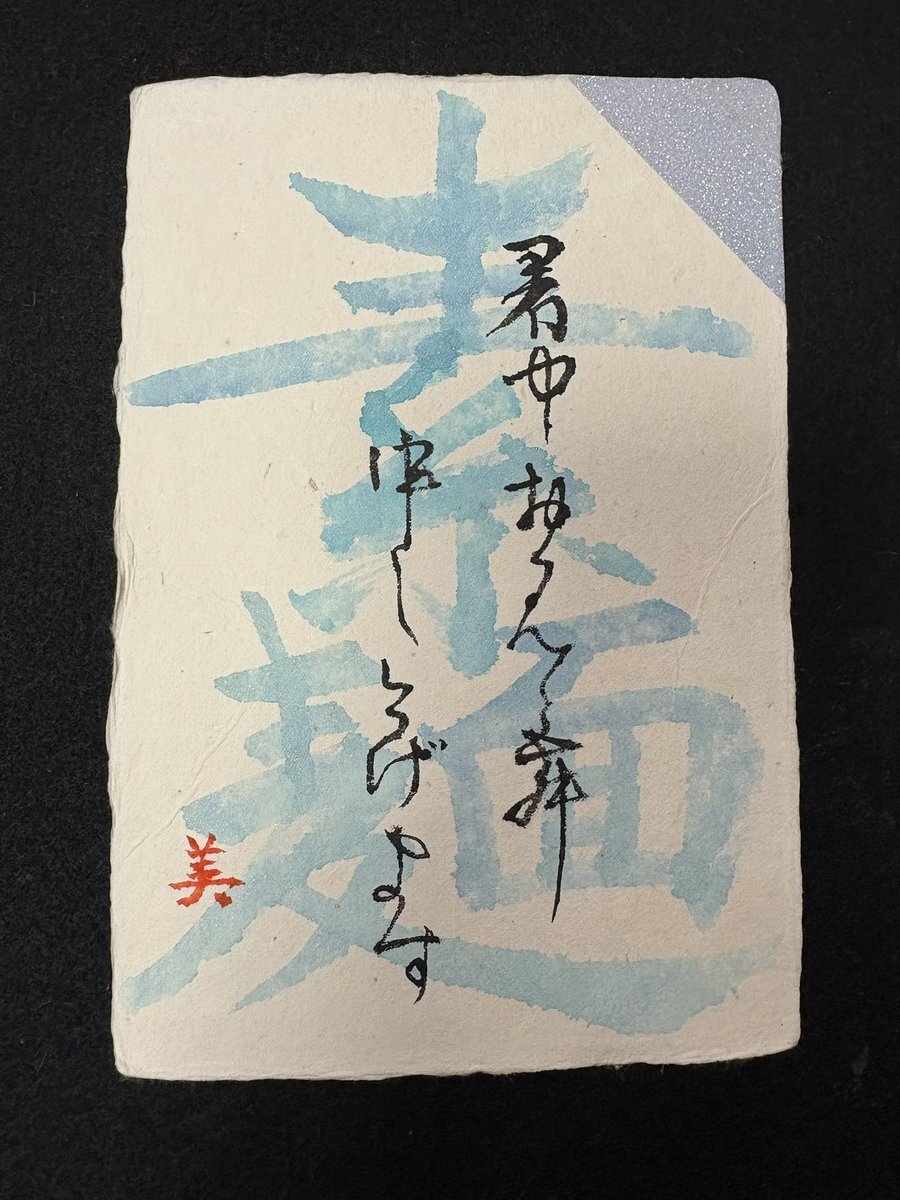 素麺
暑中お見舞
申し上げます
美